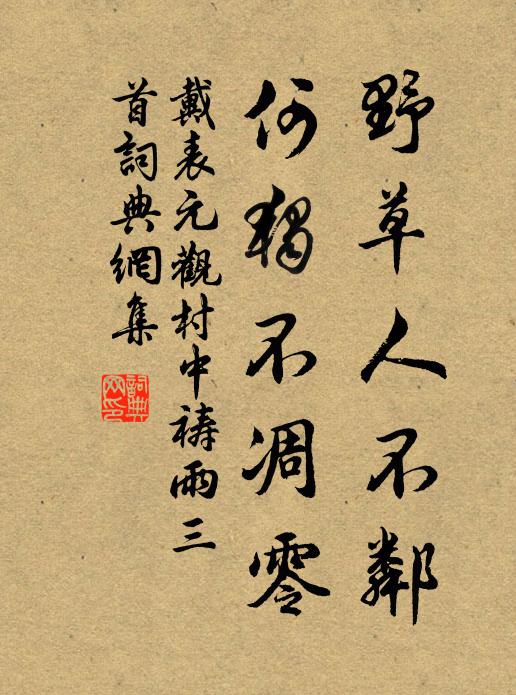 野草人不鄰
何獨不凋零
戴表元觀村中禱雨三
首詞典網集
詞典
网印